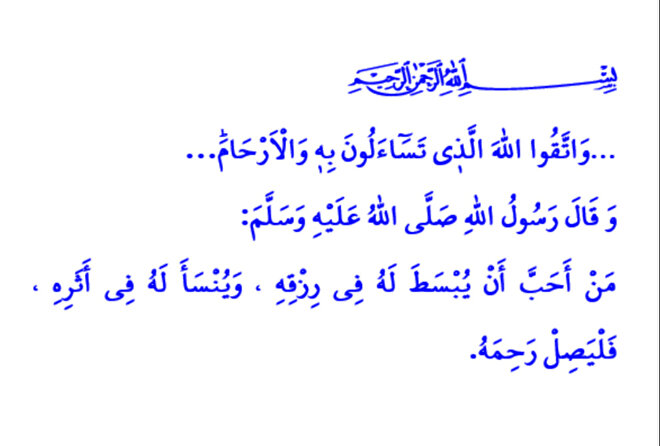 بِسْمِ اللهِ الرَّحْمٰنِ الرَّحِيمِ
...وَاتَّقُوا اللهَ الَّذ۪ى تَسَٓاءَلُونَ بِه۪ وَالْاَرْحَامَۜ...
وَ قَالَ رَسُولُ اللهِ صَلَّى اللهُ عَلَيْهِ وَسَلَّمَ:
مَنْ أَحَبَّ أَنْ يُبْسَطَ لَهُ فِى رِزْقِهِ ، وَيُنْسَأَ لَهُ فِى أَثَرِهِ ،
فَلْيَصِلْ رَحِمَهُ.